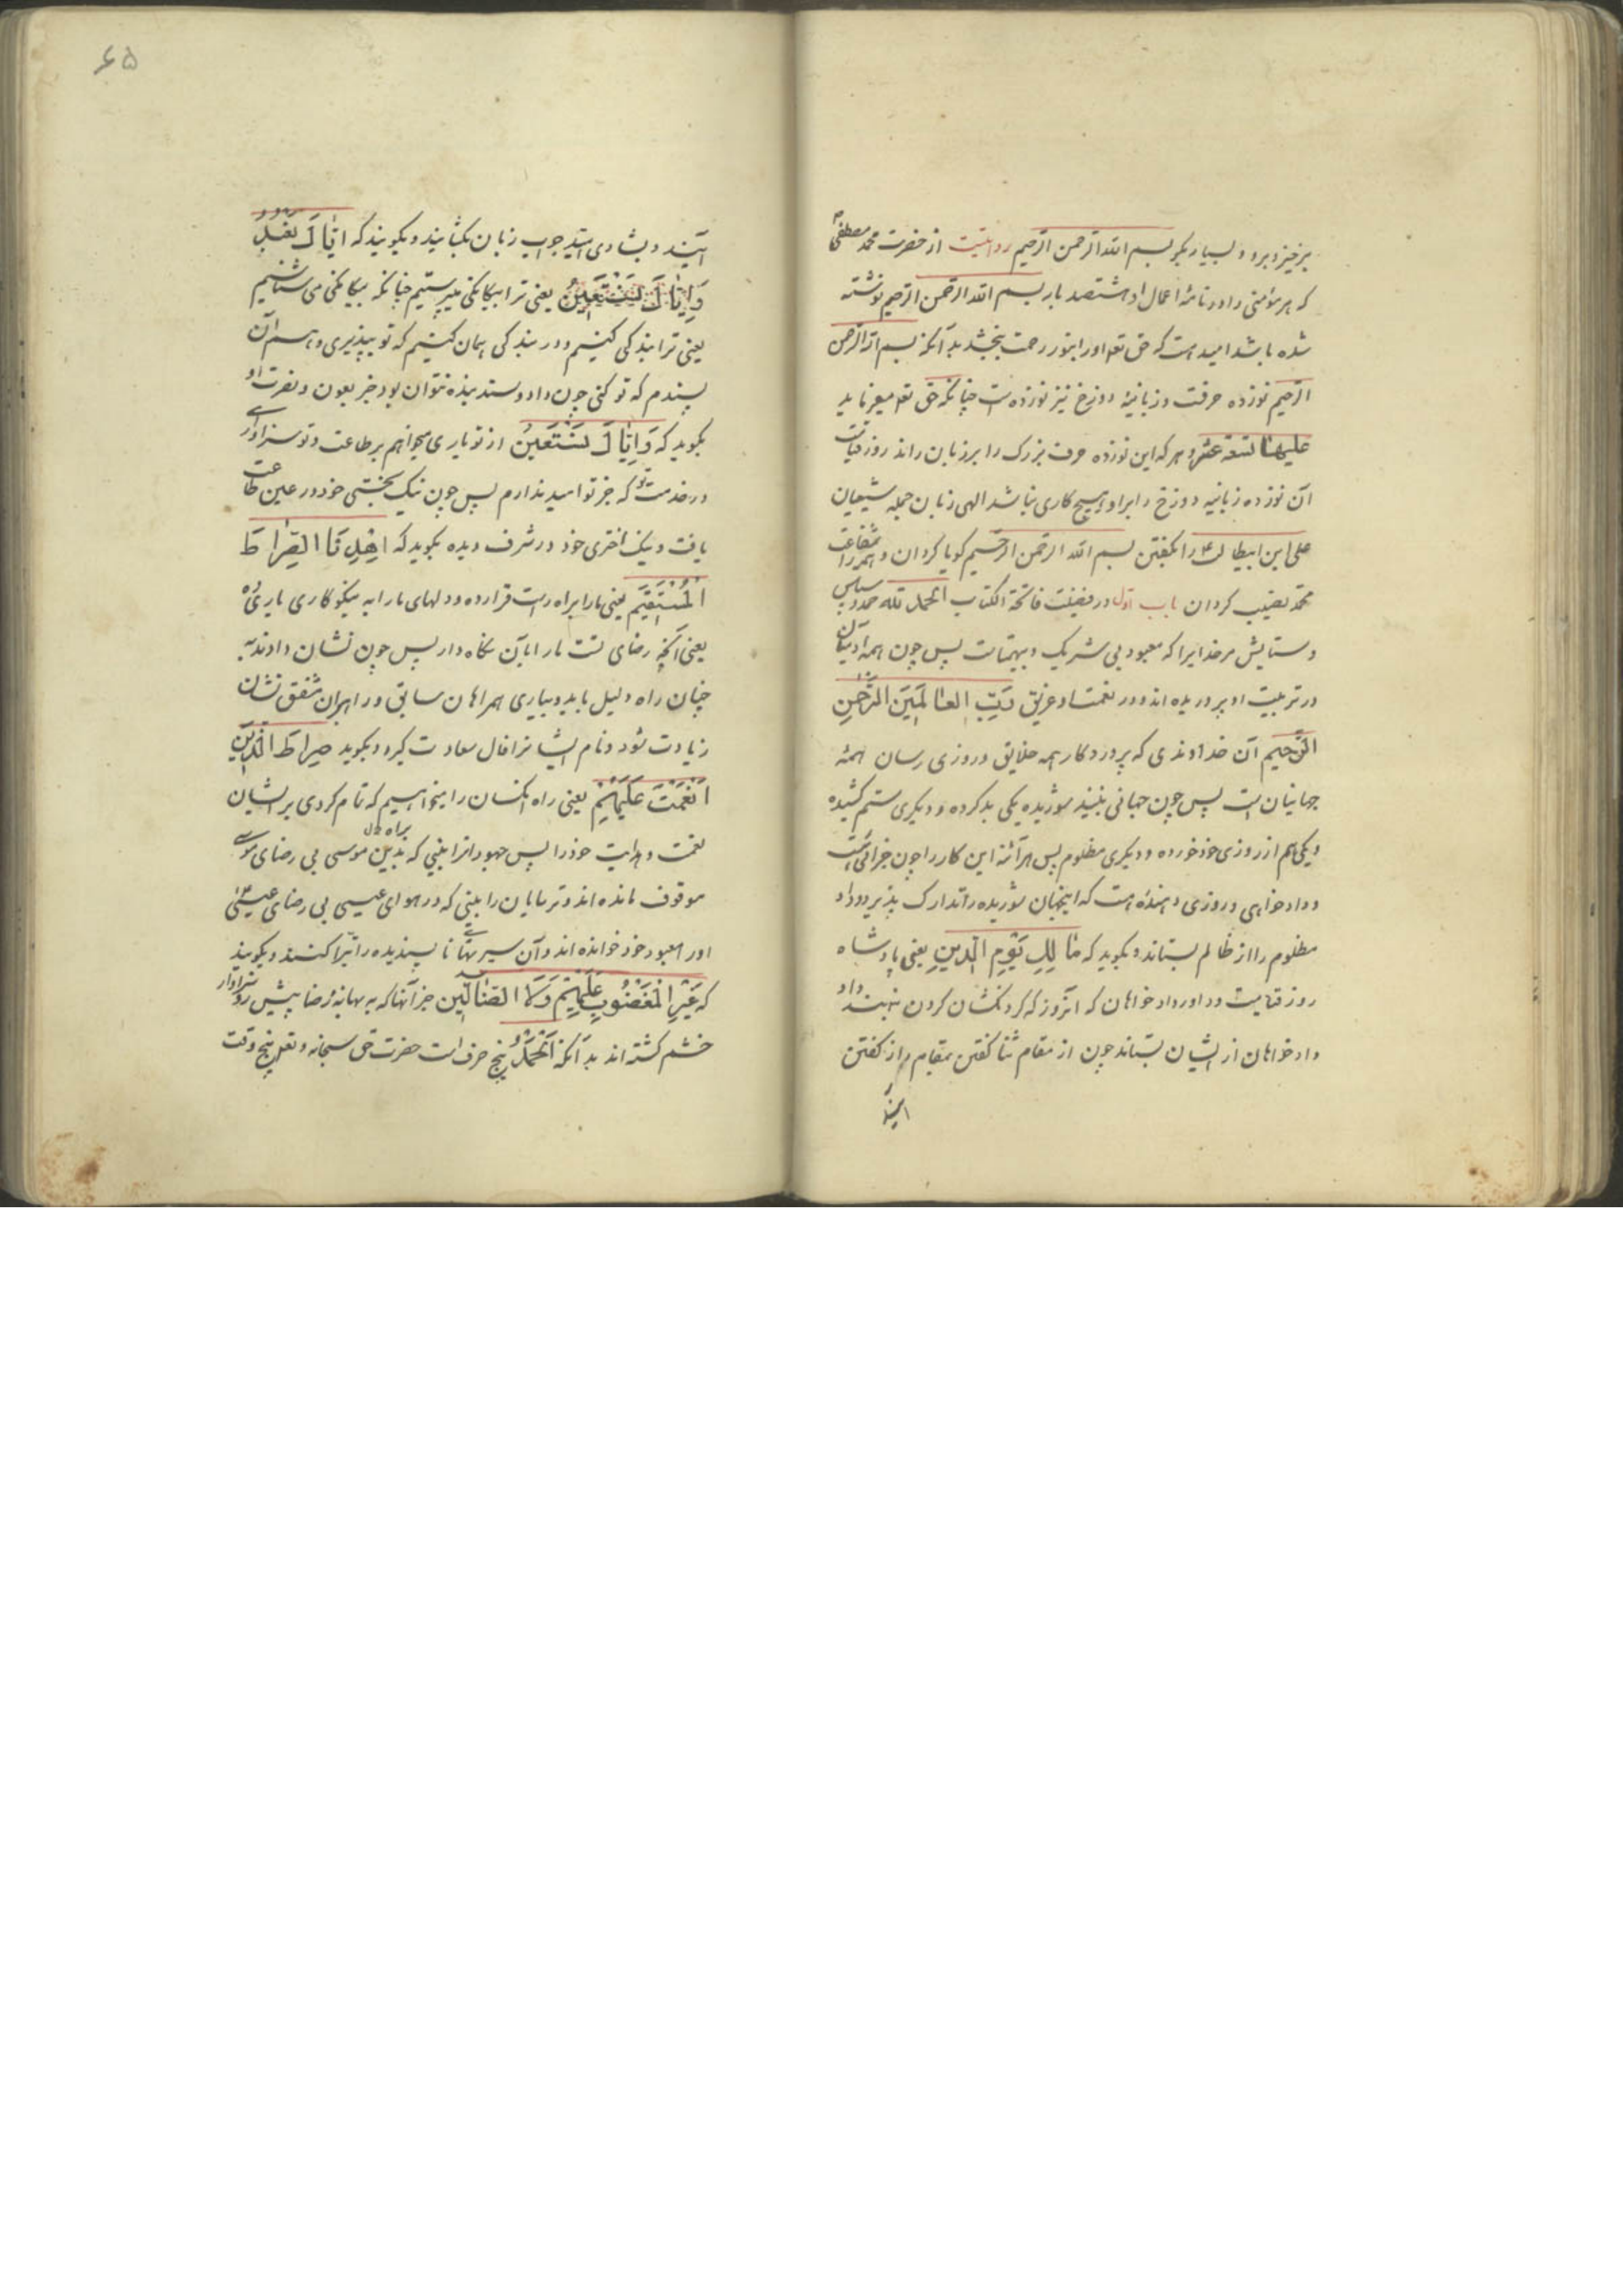 برخیز و برو و بسیار بکو بسم الله الرحمن الرحیم روایتست از حضرت محمد مصطفی
که هر مؤمنی را در نامهٔ اعمال او هشتصد بار بسم الله الرحمن الرحیم نوشته
شده باشد امید است که حق تع او را بنور رحمت بخشد بدآنکه بسم الله الرحمن
الرحیم نوزده حرفست و زبانیهٔ دوزخ نیز نوزده است چنانکه حق تع میفرماید
علیها تسعة عشر و هر که این نوزده حرف بزرک را بر زبان راند روز قیامت
آن نوزده زبانیه دوزخ را بر او هیچ کاری نباشد الهی زبان جمله شیعیان
علی ابن ابیطالب را بکفتن بسم الله الرحمن الرحیم کویا کردان و همه را شفاعت
محمد نصیب کردان باب اول در فضیلت فاتحة الکتاب الحمد لله حمد و سپاس
و ستایش مر خدایرا که معبود بی شریک و بیهمتاست پس چون همه آدمیان
در تربیت او پروریده اند و در نعمتها و غریق رب العالمین الرحمن
الرحیم آن خداوندی که پروردکار همه خلایق و روزی رسان همهٔ
جهانیان است پس چون جهانی بینند شوریده یکی بد کرده و دیکری ستم کشیده
و یکی هم از روزی خود خورده و دیکری مظلوم پس هرآئنه این کار را چون جزائی است
و داد خواهی و روزی دهنده است که اینجهان شوریده را تدارک پذیرد و داد
مظلوم را از ظالم بستاند و بکوید که مالک یوم الدین یعنی پادشاه
روز قیامت و داور دادخواهان که آنروز که کردنکشان کردن بنهند داد
دادخواهان از ایشان بستاند چون از مقام ثنا کفتن بمقام راز کفتن
آیند
۶۵
آیند و بشادی امید جواب زبان بکشایند و بکویند که ایاک نعبد
وایاک نستعین یعنی ترا بیکانکی میپرستیم چنانکه بیکانکی می شناسیم
یعنی ترا بندکی کنیم و در بندکی همان کنیم که تو بپذیری و هم آن
پسندم که تو کنی چون داد و ستد بنده نتوان بود جز بعون و نصرت او
بکوید که وایاک نستعین از تو یاری میخواهم بر طاعت و تو سزاواری
در خدمت تو که جز تو امید ندارم پس چون نیک بختی خود در عین طاعت
یافت و نیک اختری خود در شرف دیده بکوید که اهدنا الصراط
المستقیم یعنی ما را براه راست قرار ده و دلهای ما را به نیکوکاری یاری ده
یعنی آنچه رضای تست ما را بآن نکاه دار پس چون نشان دادند به
چنان راه دلیل باید و بیاری همراهان سابق و راهبران مشفق نشان
زیادت شود و نام ایشانرا فال سعادت کیرد و بکوید صراط الذین
انعمت علیهم یعنی راه آنکسان را میخواهیم که تمام کردی بر ایشان
نعمت و هدایت خود را پس جهودانرا بینی که بدین موسی بی رضای موسی
موقوف مانده اند و ترسایان را بینی که در هوای عیسی بی رضای عیسی
او را معبود خود خوانده اند و آن سیرتهای ناپسندیده را تبرا کنند و بکویند
که غیر المغضوب علیهم ولا الضالین جز آنها که به بهانهٔ رضا پیش رو سزاوار
خشم کشته اند بدآنکه الحمد پنج حرف است حضرت حق سبحانه و تع پنج وقت